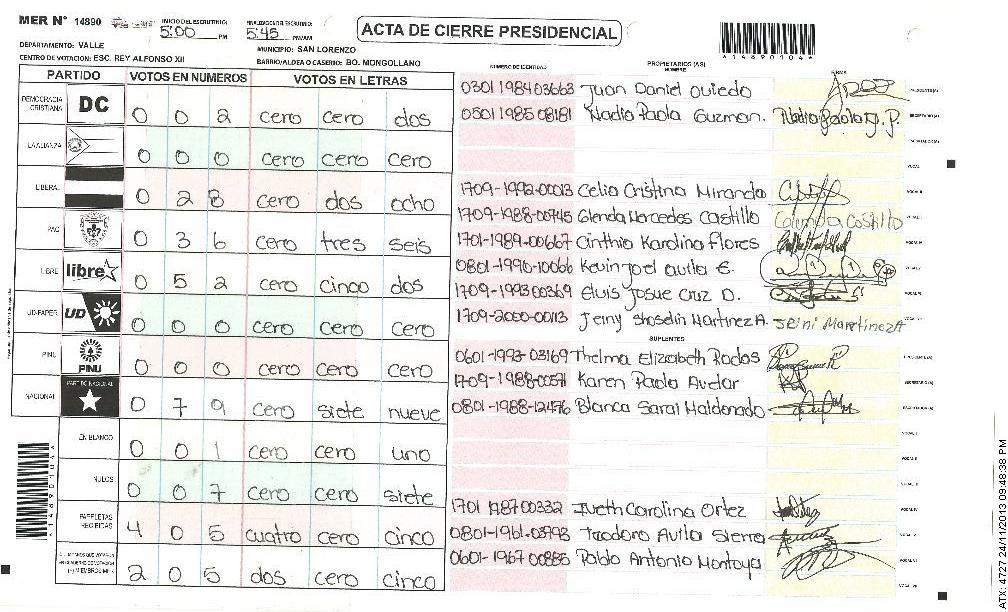 MER N° 14890
INICIO DEL ESCRUTINIO: 5:00 PM
FINALIZACION DEL ESCRUTINIO: 5:45 PM/AM
ACTA DE CIERRE PRESIDENCIAL
*14890104*
DEPARTAMENTO: VALLE
MUNICIPIO: SAN LORENZO
CENTRO DE VOTACION: ESC. REY ALFONSO XII
BARRIO/ALDEA O CASERIO: BO. MONGOLLANO
PARTIDO VOTOS EN NUMEROS VOTOS EN LETRAS
NUMERO DE IDENTIDAD PROPIETARIOS (AS) NOMBRE FIRMA
DEMOCRACIA CRISTIANA DC 0 0 2 cero cero dos
LA ALIANZA 0 0 0 cero cero cero
LIBERAL 0 2 8 cero dos ocho
PAC 0 3 6 cero tres seis
LIBRE libre 0 5 2 cero cinco dos
UD-FAPER UD 0 0 0 cero cero cero
PINU PINU 0 0 0 cero cero cero
NACIONAL PARTIDO NACIONAL 0 7 9 cero siete nueve
EN BLANCO 0 0 1 cero cero uno
NULOS 0 0 7 cero cero siete
PAPELETAS RECIBIDAS 4 0 5 cuatro cero cinco
2 0 5 dos cero cinco
0301 1984 03663 Juan Daniel Oviedo PRESIDENTE(A)
0501 1985 08181 Nadia Paola Guzman. SECRETARIO (A)
ESCRUTADOR (A)
VOCAL I
1709-1992-00013 Celia Cristina Miranda VOCAL II
1709-1988-00745 Glenda Mercedes Castillo Glenda Castillo
1701-1989-00667 Cinthia Karolina Flores VOCAL IV
0801-1990-10066 Kevin Joel avila E. VOCAL V
1709-1993 00369 Eluis Josue Cruz D. VOCAL VI
1709-2000-00113 Jeiny Shoselin Martinez A. Jeini Martinez A
SUPLENTES
0601-1993-03169 Thelma Elizabeth Rodas PRESIDENTE(A)
1709-1988-00571 Karen Paola Avelar SECRETARIO (A)
0801-1988-12476 Blanca Sarai Maldonado ESCRUTADOR (A)
VOCAL I
VOCAL II
VOCAL III
1701 1987 00332 Iveth Carolina Ortez VOCAL IV
0801-1961-03993 Teodoro Avila Sierra VOCAL V
0601-1967 00885 Pablo Antonio Montoya VOCAL VI
VOCAL VII
*14890104*
ATX: 4727 24/11/2013 09:48:38 PM